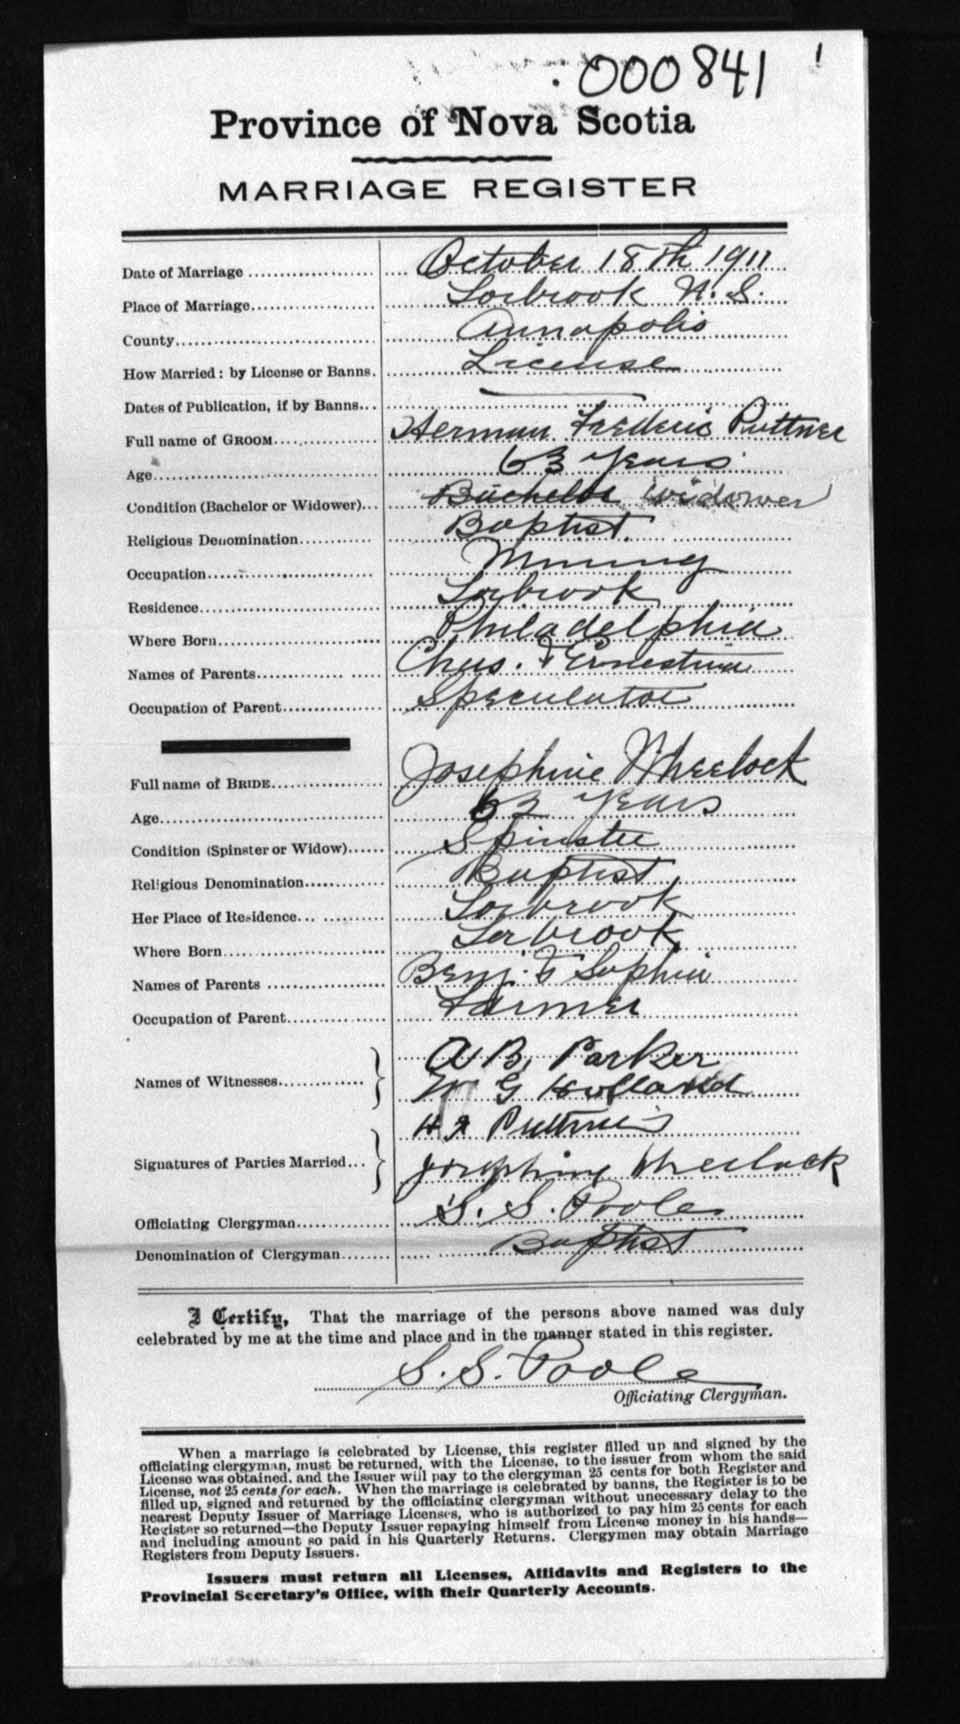 000841
Province of Nova Scotia
MARRIAGE REGISTER
Date of Marriage October 18th 1911
Place of Marriage Torbrook N.S.
County Annapolis
How Married: by License or Banns. License
Dates of Publication, if by Banns
Full name of GROOM Herman Frederic Puttner
Age 63 Years
Condition (Bachelor or Widower) Bachelor Widower
Religious Denomination Baptist
Occupation Mining
Residence Torbrook
Where Born Philadelphia
Names of Parents Chas. & Ernestina
Occupation of Parent Speculator
Full name of BRIDE Josephine Wheelock
Age 63 Years
Condition (Spinster or Widow) Spinster
Religious Denomination Baptist
Her Place of Residence Torbrook
Where Born Torbrook
Names of Parents Benj. & Sophia
Occupation of Parent Farmer
A B. Parker
Names of Witnesses W G Holland
H F Puttner
Signatures of Parties Married Josephine Wheelock
Officiating Clergyman S. S. Poole
Denomination of Clergyman Baptist
I Certify, That the marriage of the persons above named was duly
celebrated by me at the time and place and in the manner stated in this register.
S. S. Poole
Officiating Clergyman.
When a marriage is celebrated by License, this register filled up and signed by the
officiating clergyman, must be returned, with the License, to the issuer from whom the said
License was obtained, and the Issuer will pay to the clergyman 25 cents for both Register and
License, not 25 cents for each. When the marriage is celebrated by banns, the Register is to be
filled up, signed and returned by the officiating clergyman without unecessary delay to the
nearest Deputy Issuer of Marriage Licenses, who is authorized to pay him 25 cents for each
Register so returned—the Deputy Issuer repaying himself from License money in his hands—
and including amount so paid in his Quarterly Returns. Clergymen may obtain Marriage
Registers from Deputy Issuers.
Issuers must return all Licenses, Affidavits and Registers to the
Provincial Secretary's Office, with their Quarterly Accounts.